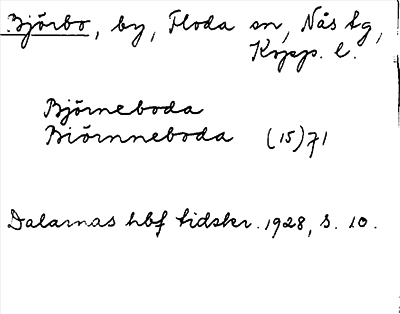 Björbo, by, Floda sn, Nås tg,
Kopp. l.
Björneboda
Biörnneboda (15)71
Dalarnas hbf tidskr. 1928, s. 10.